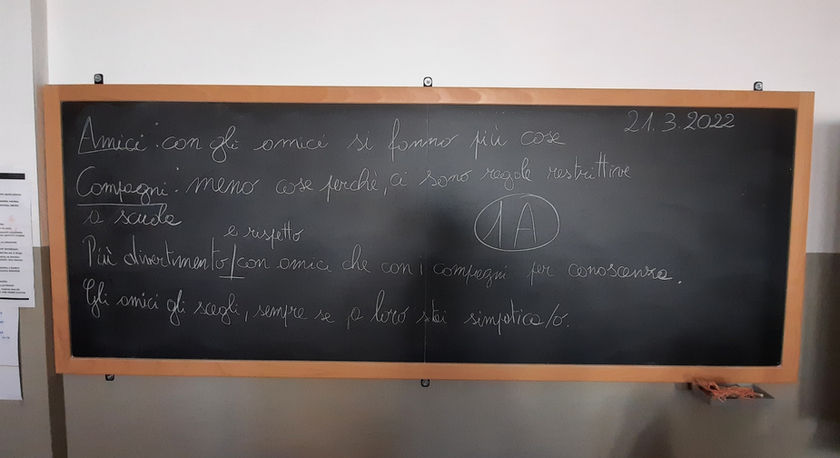 21.3.2022
Amici: con gli amici si fanno più cose
Compagni: meno cose perchè, ci sono regole restrittive
a scuola
1A
e rispetto
Più divertimento / con amici che con i compagni per conoscenza.
Gli amici gli scegli, sempre se, a loro stai simpatica/o.